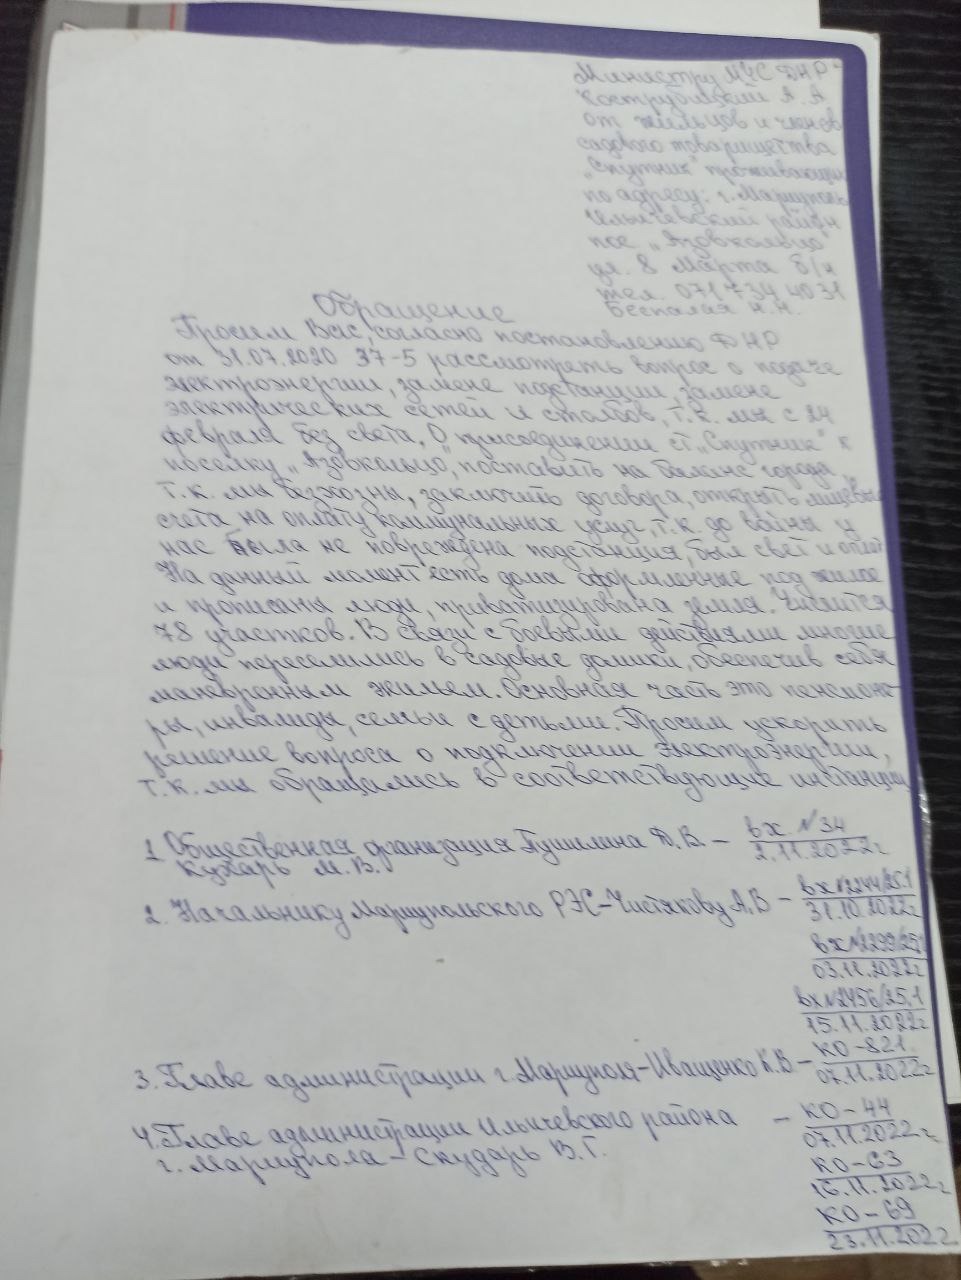 Министру МЧС ДНР
Кострубицкий А.А
от жильцов и членов
садового товарищества
"Спутник" проживающих
по адресу: г. Мариуполь
Ильичевский район
пос "Азовкольцо"
ул. 8 Марта б/н
тел. 071 734 4031
Беспалая Н.Н.
Обращение
Просим Вас, согласно постановлению ДНР
от 31.07.2020 37-5 рассмотреть вопрос о подаче
электроэнергии, замене подстанции, замене
электрических сетей и столбов, т.к. мы с 24
февраля без света, О присоединении ст. "Спутник" к
поселку "Азовкольцо", поставить на баланс города
т.к. мы безхозны, заключить договора, открыть лицевые
счета на оплату коммунальных услуг, т.к. до войны у
нас была не повреждена подстанция, был свет и
На данный момент есть дома оформленные под жилое
и прописаны люди, приватизирована земля. Числится
78 участков. В связи с боевыми действиями многие
люди переселились в садовые домики, обеспечив себя
маневренным жильем. Основная часть это пенсионе-
ры, инвалиды, семьи с детьми. Просим ускорить
решение вопроса о подключении электроэнергии,
т.к. мы обращались в соответствующие инстанции
1. Общественная организация Пушилина Д.В. – вх. №34
Кухарь М.В. 2.11.2022г
2. Начальнику Мариупольского РЭС-Чистякову А.В – вх №2244/25.1
31.10.2022г
вх №2299/25.1
03.11.2022г
вх №2456/25.1
15.11.2022г
3. Главе администрации г. Мариуполя-Иващенко К.В – КО-821.
07.11.2022г
4. Главе администрации Ильичевского района – КО-44
07.11.2022г
г. Мариупола – Скударь В.Г.
КО-63
16.11.2022г
КО-69
23.11.2022г